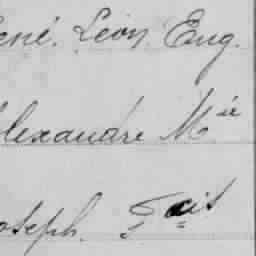 ené. Léon. Eug.
lexandre M.ie
oseph. F.cis